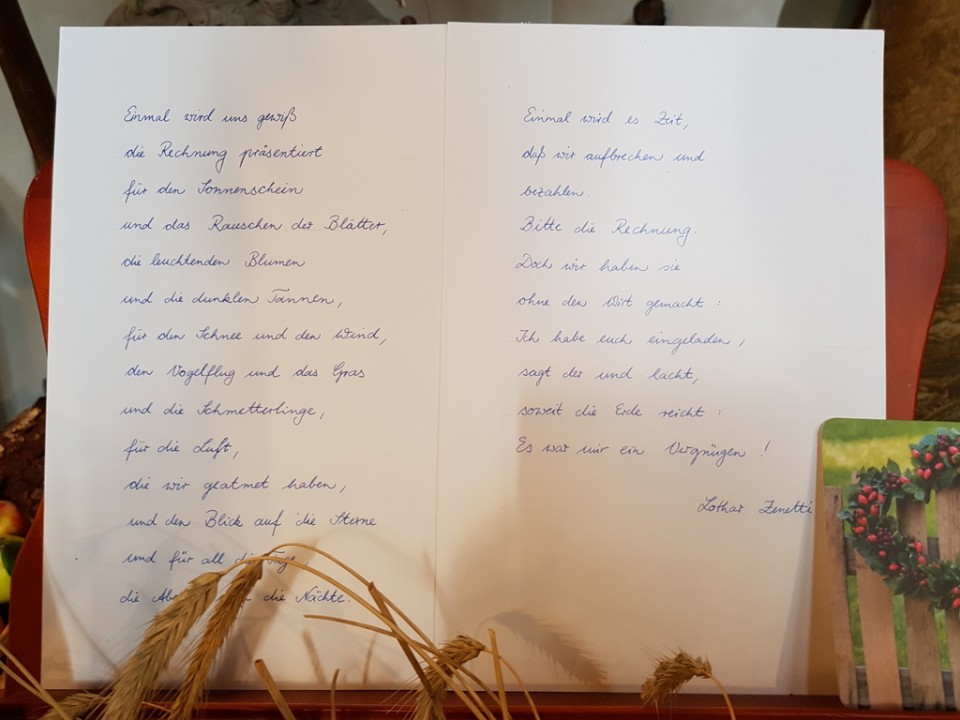 Einmal wird uns gewiß
die Rechnung präsentiert
für den Sonnenschein
und das Rauschen der Blätter,
die leuchtenden Blumen
und die dunklen Tannen,
für den Schnee und den Wind,
den Vogelflug und das Gras
und die Schmetterlinge,
für die Luft,
die wir geatmet haben,
und den Blick auf die Sterne
und für all die Tage,
die die Nächte.
Einmal wird es Zeit,
daß wir aufbrechen und
bezahlen.
Bitte die Rechnung.
Doch wir haben sie
ohne den Wirt gemacht:
Ich habe euch eingeladen,
sagt der und lacht,
soweit die Erde reicht:
Es war mir ein Vergnügen!
Lothar Zenetti